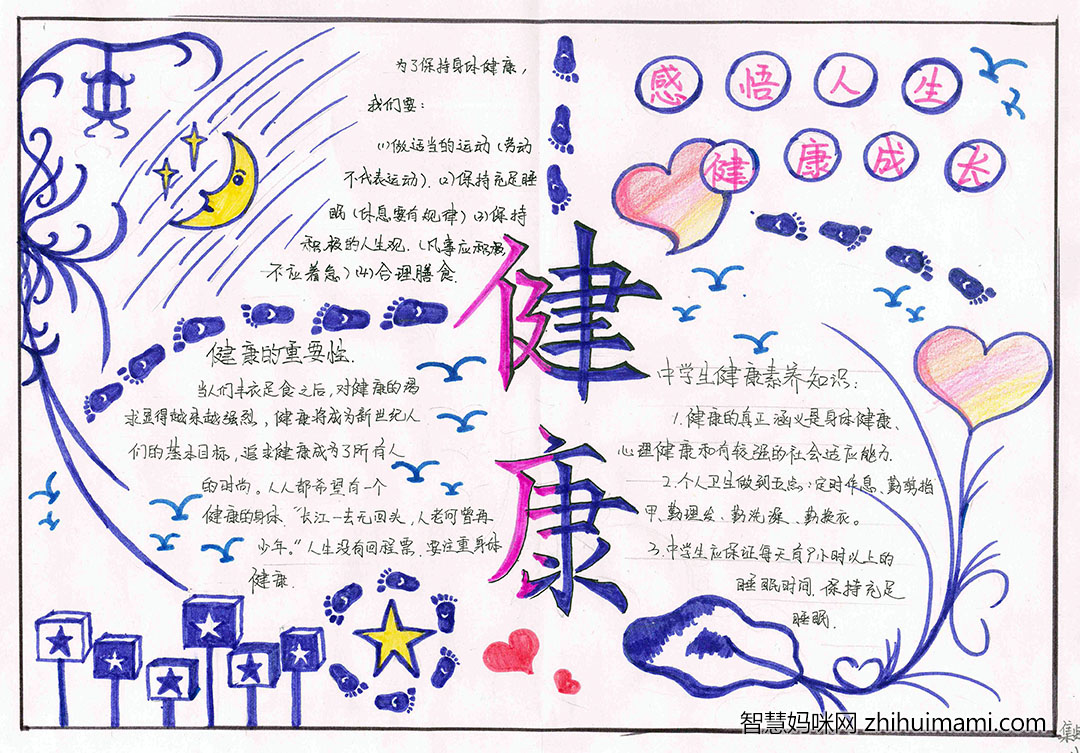 为了保持身体健康，
我们要：
(1)做适当的运动（劳动
不代表运动）.(2)保持充足睡
眠（休息要有规律）(3)保持
积极的人生观.（凡事应积极,
不应着急）(4)合理膳食.
感悟人生
健康成长
健康
健康的重要性.
当人们丰衣足食之后，对健康的渴
求显得越来越强烈，健康将成为新世纪人
们的基本目标，追求健康成为了所有人
的时尚。人人都希望有一个
健康的身体."长江一去无回头，人老何曾再
少年。"人生没有回程票.要注重身体
健康.
中学生健康素养知识：
1.健康的真正涵义是身体健康、
心理健康和有较强的社会适应能力.
2.个人卫生做到五点：定时作息、勤剪指
甲、勤理发、勤洗澡、勤换衣。
3.中学生应保证每天有9小时以上的
睡眠时间.保持充足
睡眠.
智慧妈咪网 zhihuimami.com